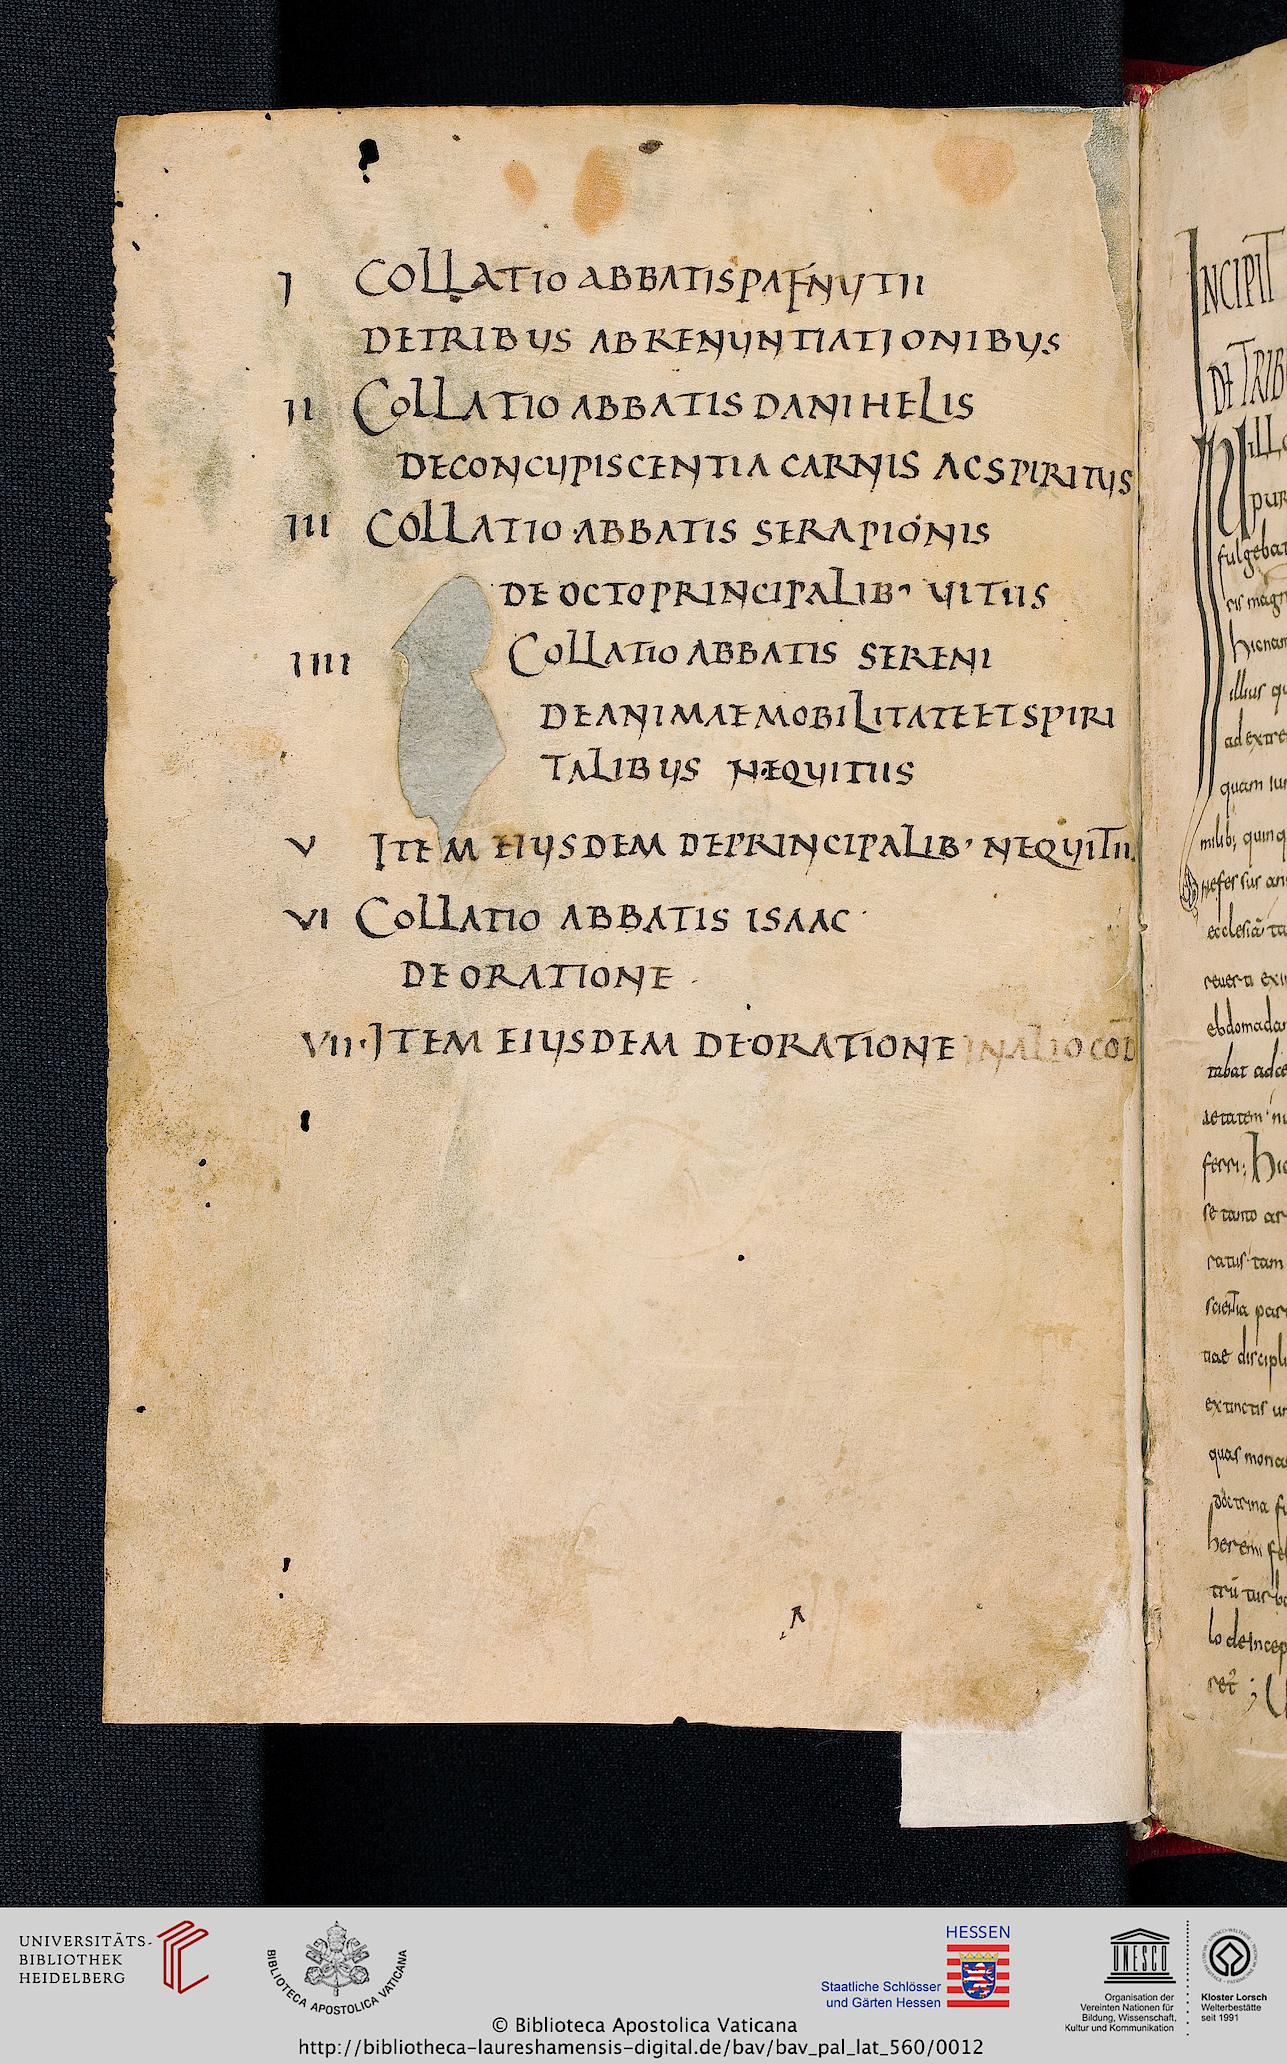 I COLLATIO ABBATIS PAFNUTII
DE TRIBUS ABRENUNTIATIONIBUS
II COLLATIO ABBATIS DANIHELIS
DE CONCUPISCENTIA CARNIS AC SPIRITUS
III COLLATIO ABBATIS SERAPIONIS
DE OCTO PRINCIPALIB' VITIIS
IIII COLLATIO ABBATIS SERENI
DE ANIMAE MOBILITATE ET SPIRI
TALIBUS NEQUITIIS
V ITEM EIUSDEM DE PRINCIPALIB' NEQUITII
VI COLLATIO ABBATIS ISAAC
DE ORATIONE
VII ITEM EIUSDEM DE ORATIONE IN ALIO COD
INCIPIT
DE TRIB
fulgebat
cis magn
illius qu
ad extre
quam
milib; quinq
ecclesiā
ebdomada
aetatem
se tanto
catus tam
scientia
tiae discipli
extinctis
quas mona
doctrina
heremi
lo deincep
UNIVERSITÄTS-
BIBLIOTHEK
HEIDELBERG
BIBLIOTECA APOSTOLICA VATICANA
HESSEN
Staatliche Schlösser
und Gärten Hessen
UNESCO
Organisation der
Vereinten Nationen für
Bildung, Wissenschaft,
Kultur und Kommunikation
Kloster Lorsch
Welterbestätte
seit 1991
© Biblioteca Apostolica Vaticana
http://bibliotheca-laureshamensis-digital.de/bav/bav_pal_lat_560/0012